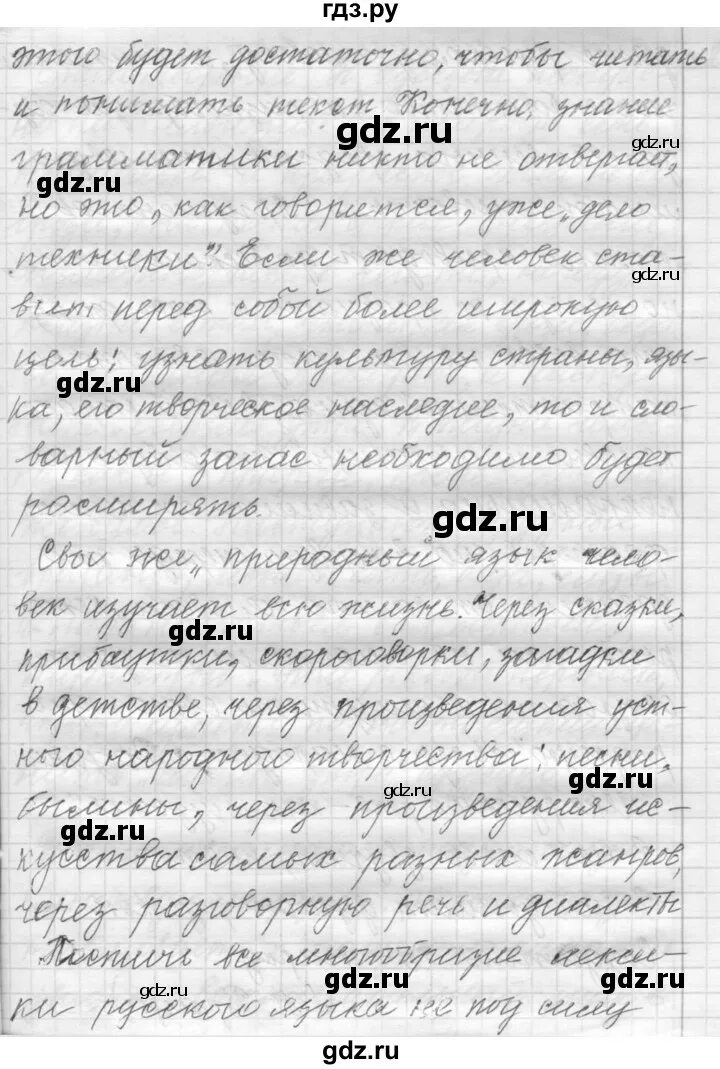 гдз.ру
этого будет достаточно, чтобы читать
и понимать текст Конечно, знание
gdz.ru gdz.ru
грамматики никто не отвергает,
gdz.ru
но это, как говорится, уже „дело
техники". Если же человек ста-
gdz.ru
вит перед собой более широкую
цель: узнать культуру страны, язы-
gdz.ru
ка, его творческое наследие, то и сло-
варный запас необходимо будет
расширять.
gdz.ru
Свой же „природный язык чело-
век изучает всю жизнь. Через сказки,
gdz.ru
прибаутки, скороговорки, загадки
в детстве, через произведения уст-
ного народного творчества: песни,
gdz.ru
былины, через произведения ис-
gdz.ru
gdz.ru
кусства самых разных жанров,
через разговорную речь и диалекты
Постичь все многообразие лекси-
gdz.ru gdz.ru gdz.ru
ки русского языка не под силу
gdz.ru